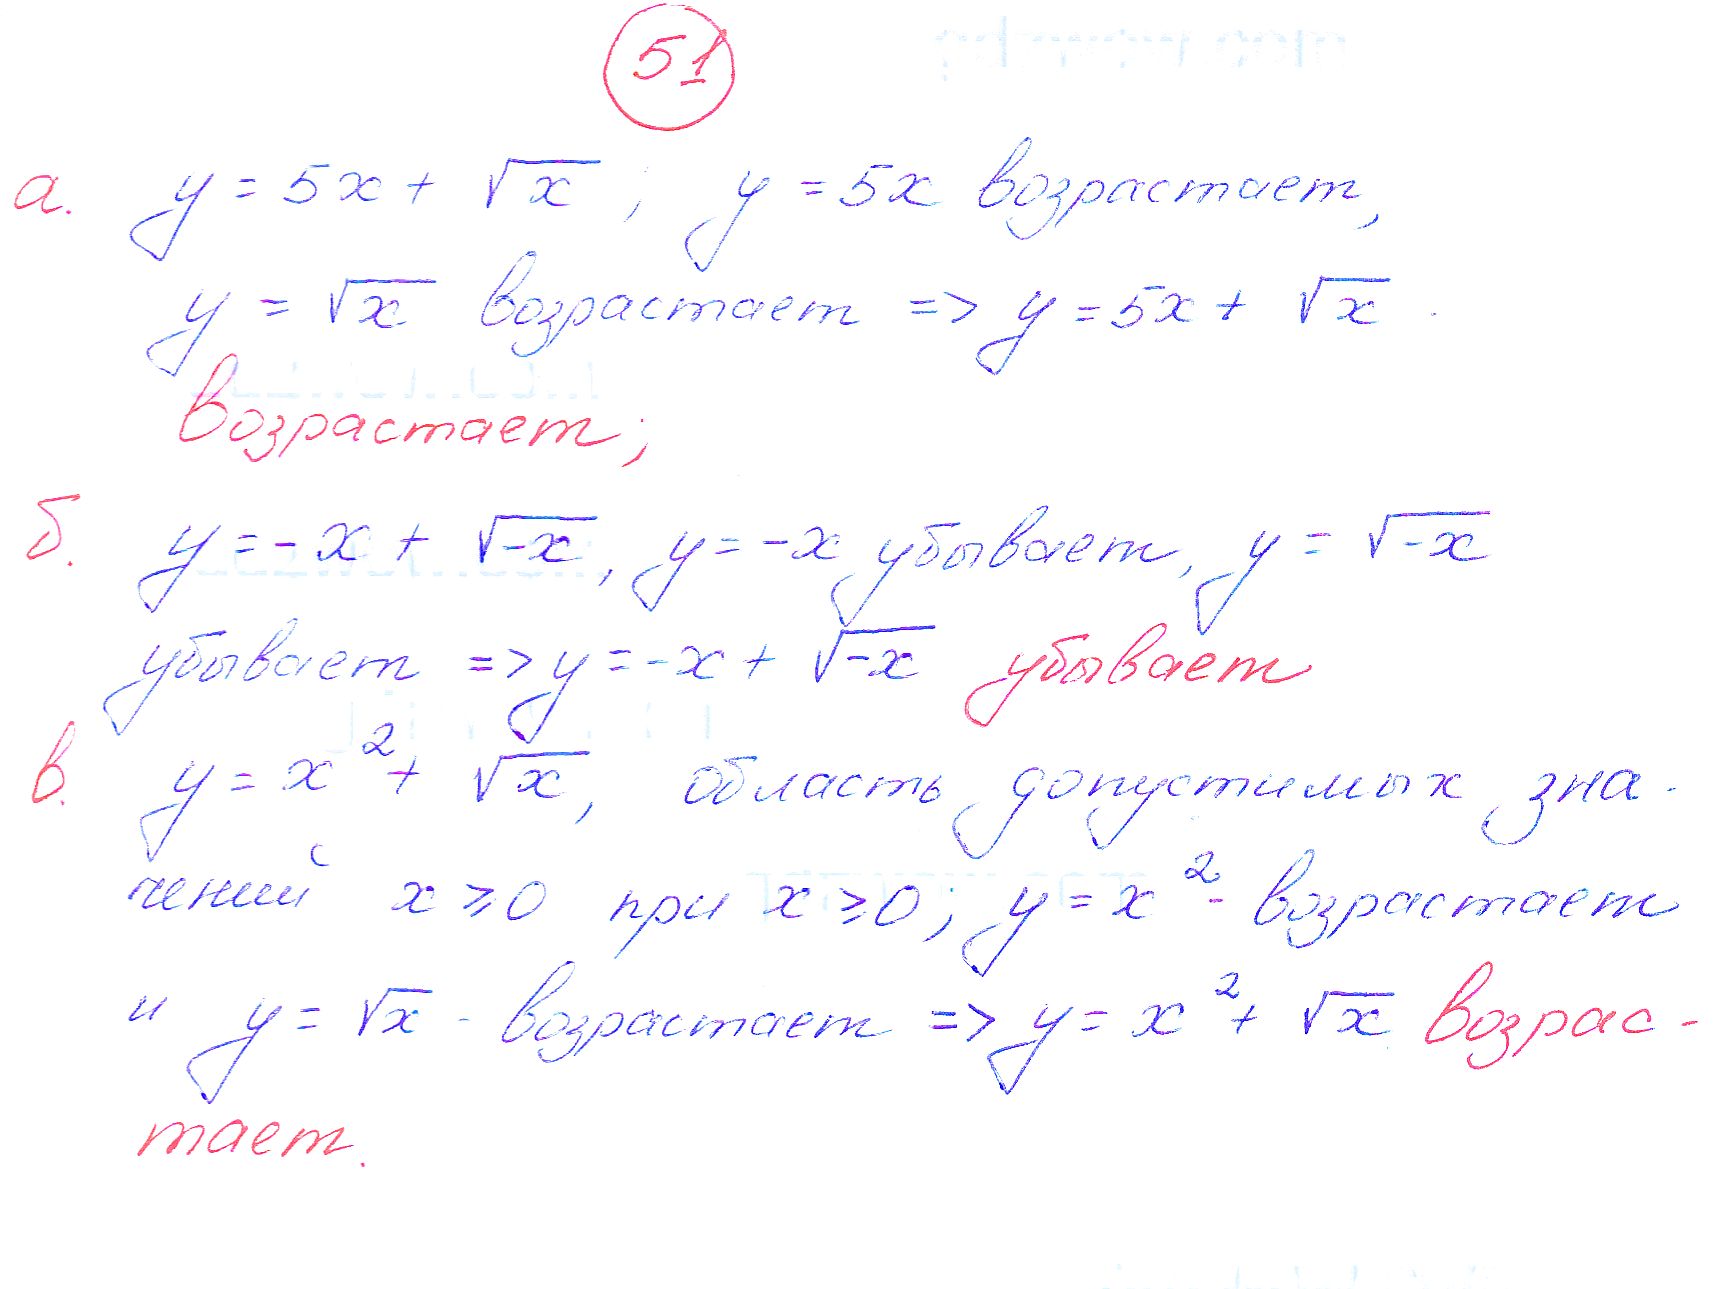 51
а. y = 5x + √x ; y = 5x возрастает,
y = √x возрастает => y = 5x + √x
возрастает;
б. y = -x + √-x, y = -x убывает, y = √-x
убывает => y = -x + √-x убывает
в. y = x² + √x, область допустимых зна-
чений x ⩾ 0 при x ⩾ 0; y = x² - возрастает
и y = √x - возрастает => y = x² + √x возрас-
тает.